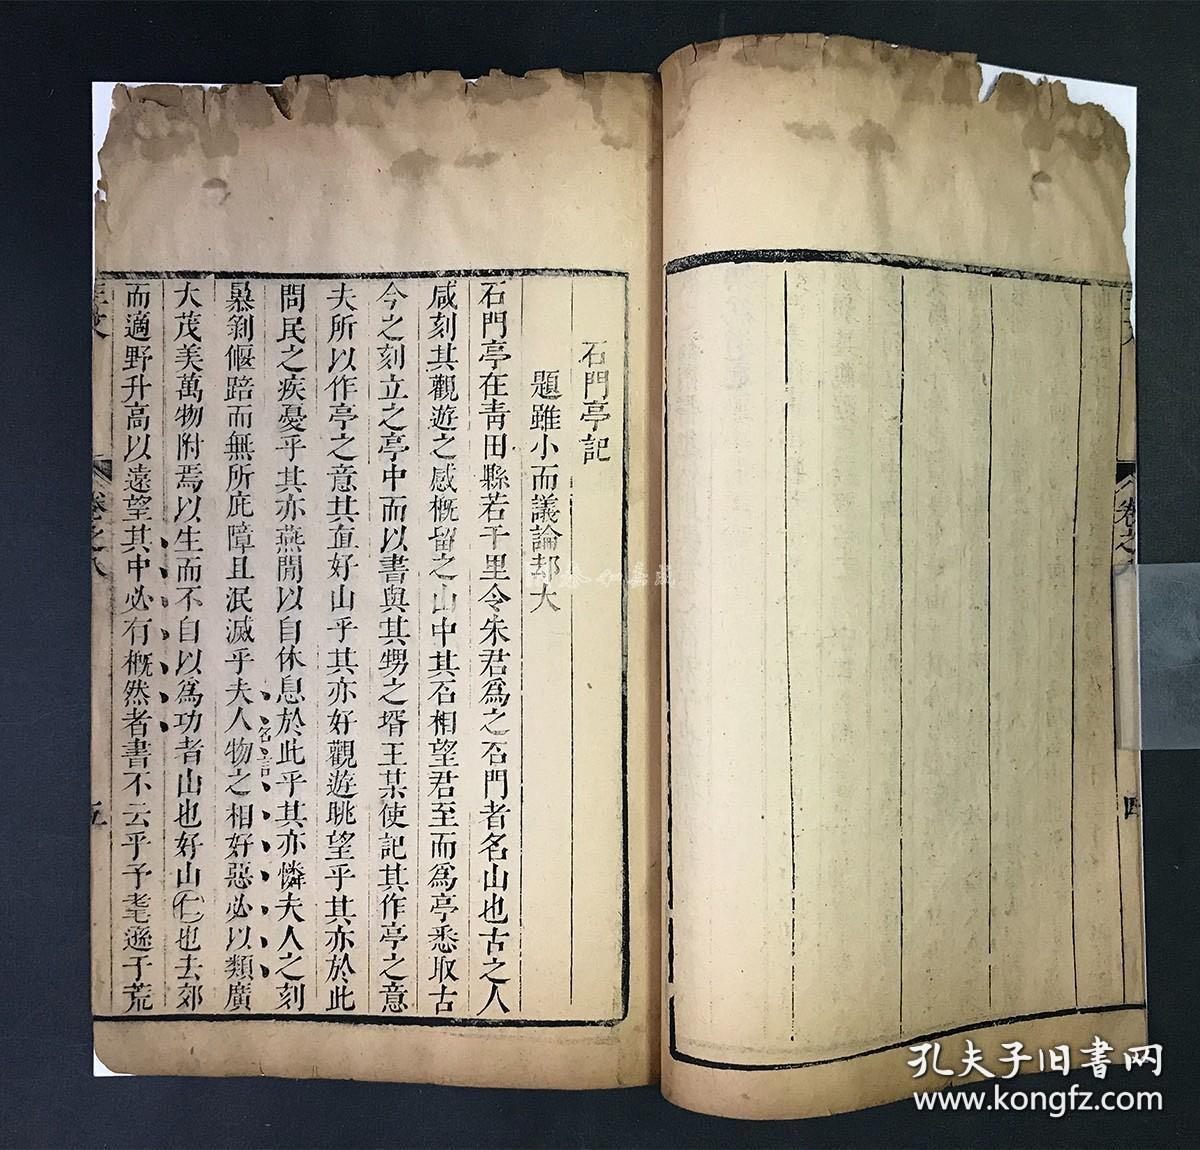 石門亭記
題雖小而議論却大
石門亭在青田縣若干里令朱君爲之石門者名山也古之人
咸刻其觀遊之感槪留之山中其石相望君至而爲亭悉取古
今之刻立之亭中而以書與其甥之壻王某使記其作亭之意
夫所以作亭之意其直好山乎其亦好觀遊眺望乎其亦於此
問民之疾憂乎其亦燕閒以自休息於此乎其亦憐夫人之刻
名言
暴剝偃踣而無所庇障且泯滅乎夫人物之相好惡必以類廣
大茂美萬物附焉以生而不自以爲功者山也好山仁也去郊
而適野升高以遠望其中必有槪然者書不云乎予耄遜于荒
卷之八
五
卷之
四
孔夫子旧书网
www.kongfz.com